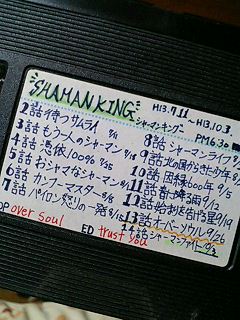 SHAMAN KING
シャーマンキング
H13.7.11
～H13.10.3.
PM6:30
2話 待つサムライ 7/11
3話 もう一人のシャーマン 7/18
4話 憑依100% 7/25
5話 おジャマなシャーマン 8/1
6話 カンフーマスター 8/8
7話 パイロン怒りの一発 8/15
8話 シャーマンライフ 8/
9話 北の国からきた少年 8/
10話 因縁600年 9/5
11話 9/12
12話 始まりを告げる星 9/19
13話 オーバーソウル 9/26
14話 シャーマンファイト 10/3
OP over soul
ED trust you